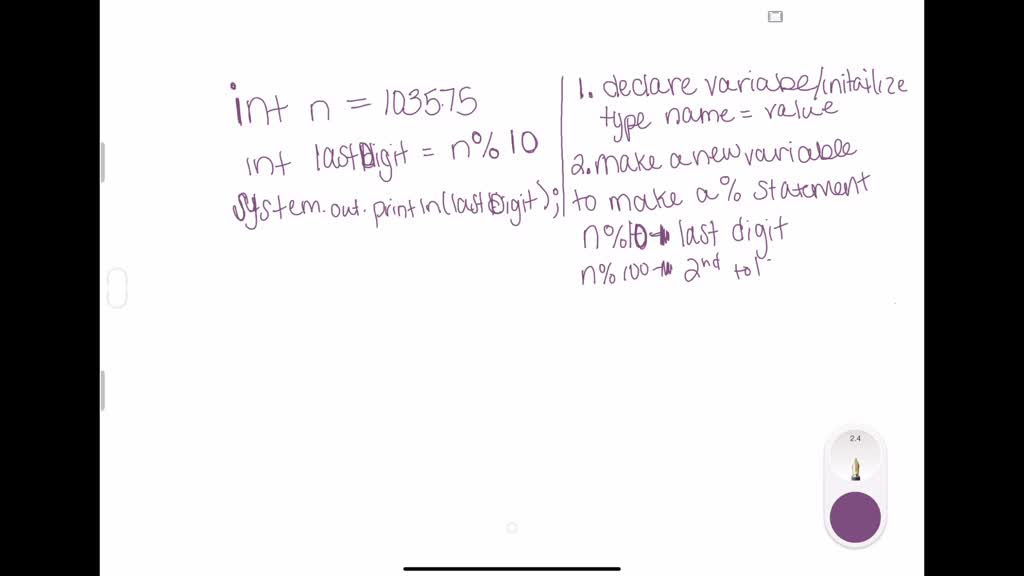 int n = 103575
int lastDigit = n% 10
System.out.println(lastDigit);
1. declare variabe/initailize
type name = value
2. make a new variable
to make a % statement
n%10→ last digit
n%100→ 2nd to l
2.4